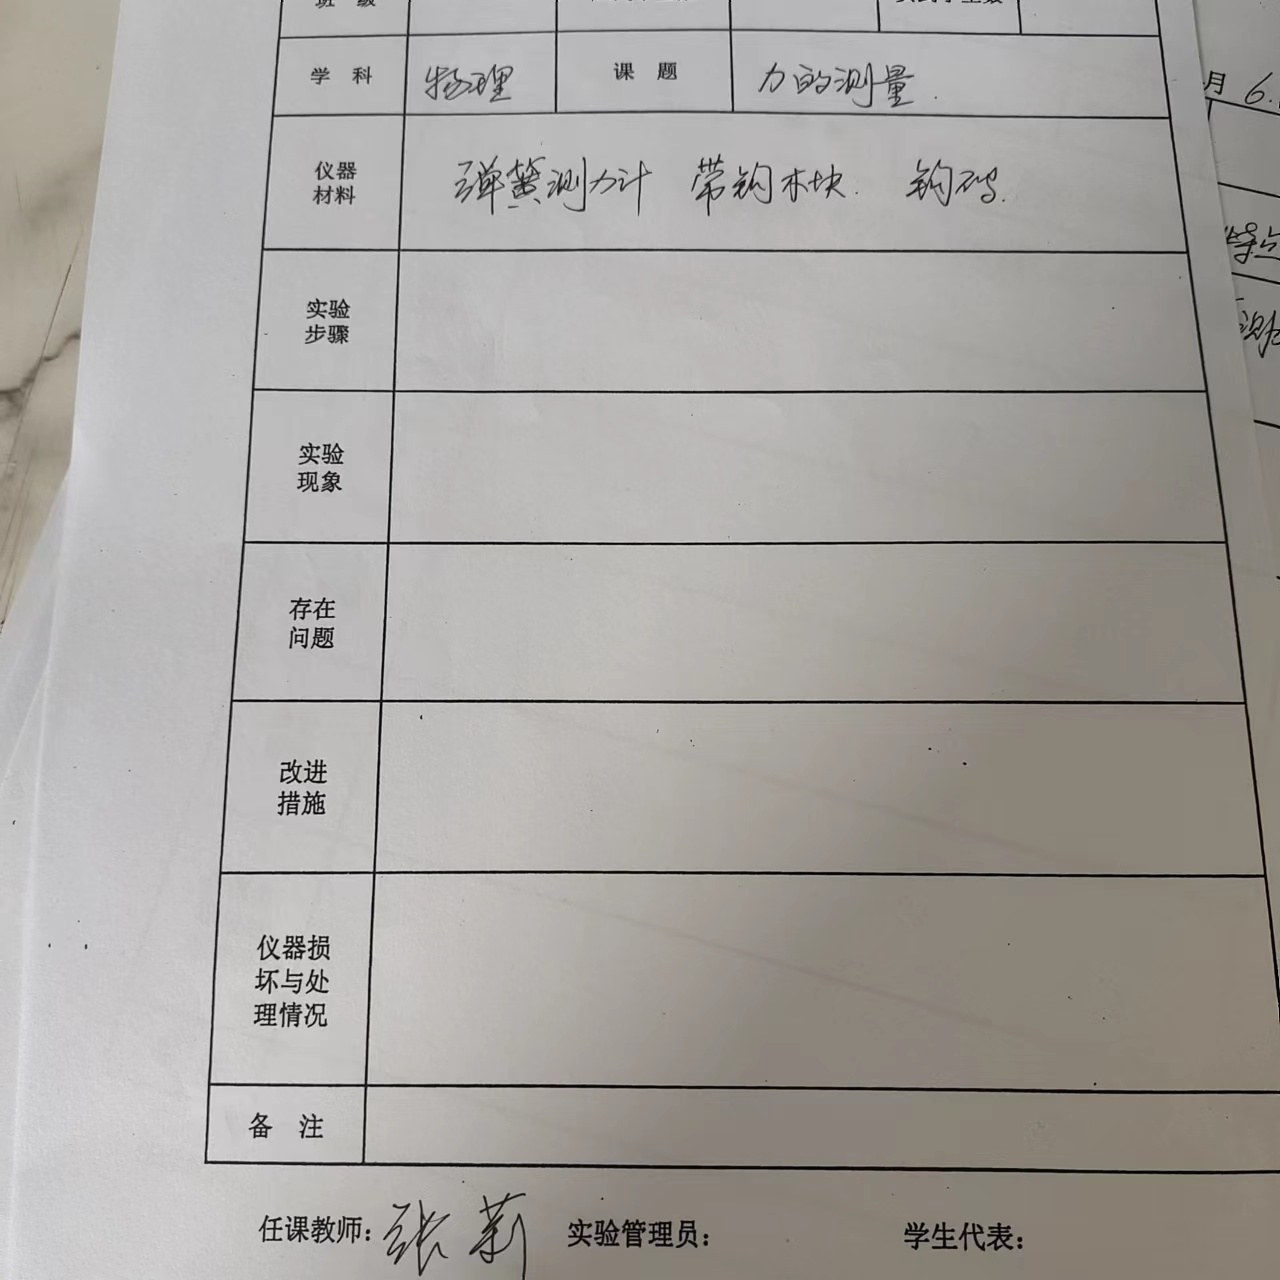 班 级
学 科 物理 课 题 力的测量.
仪器
材料
弹簧测力计 带钩木块. 钩码.
实验
步骤
实验
现象
存在
问题
改进
措施
仪器损
坏与处
理情况
备 注
任课教师: 张莉 实验管理员: 学生代表:
月 6.
特点